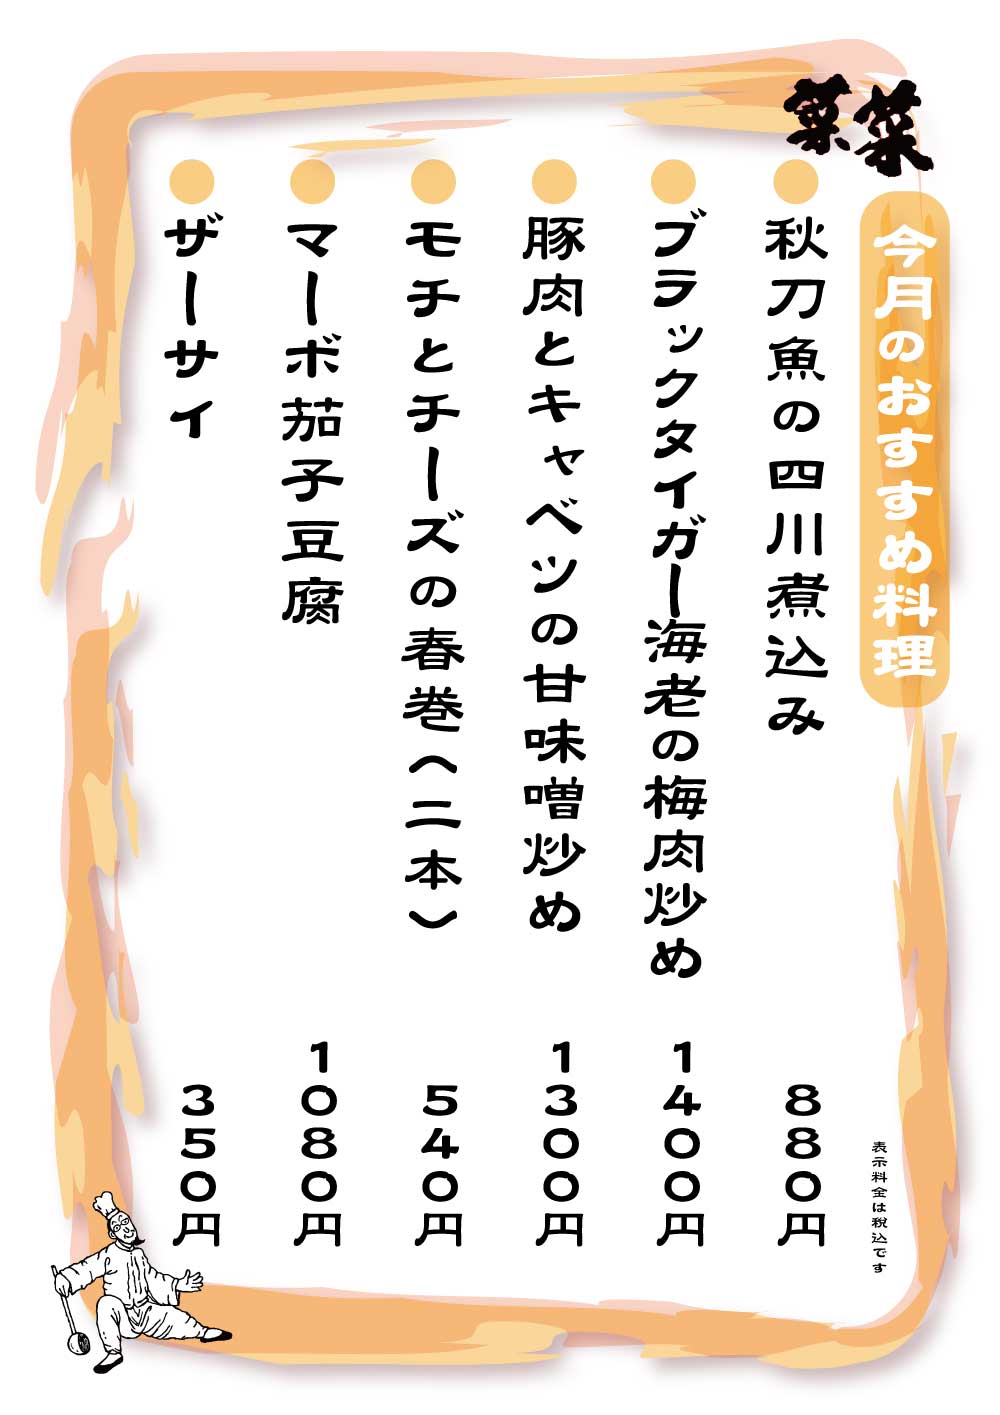 菜菜
今月のおすすめ料理
秋刀魚の四川煮込み 880円
ブラックタイガー海老の梅肉炒め 1400円
豚肉とキャベツの甘味噌炒め 1300円
モチとチーズの春巻（二本） 540円
マーボ茄子豆腐 1080円
ザーサイ 350円
表示料金は税込です